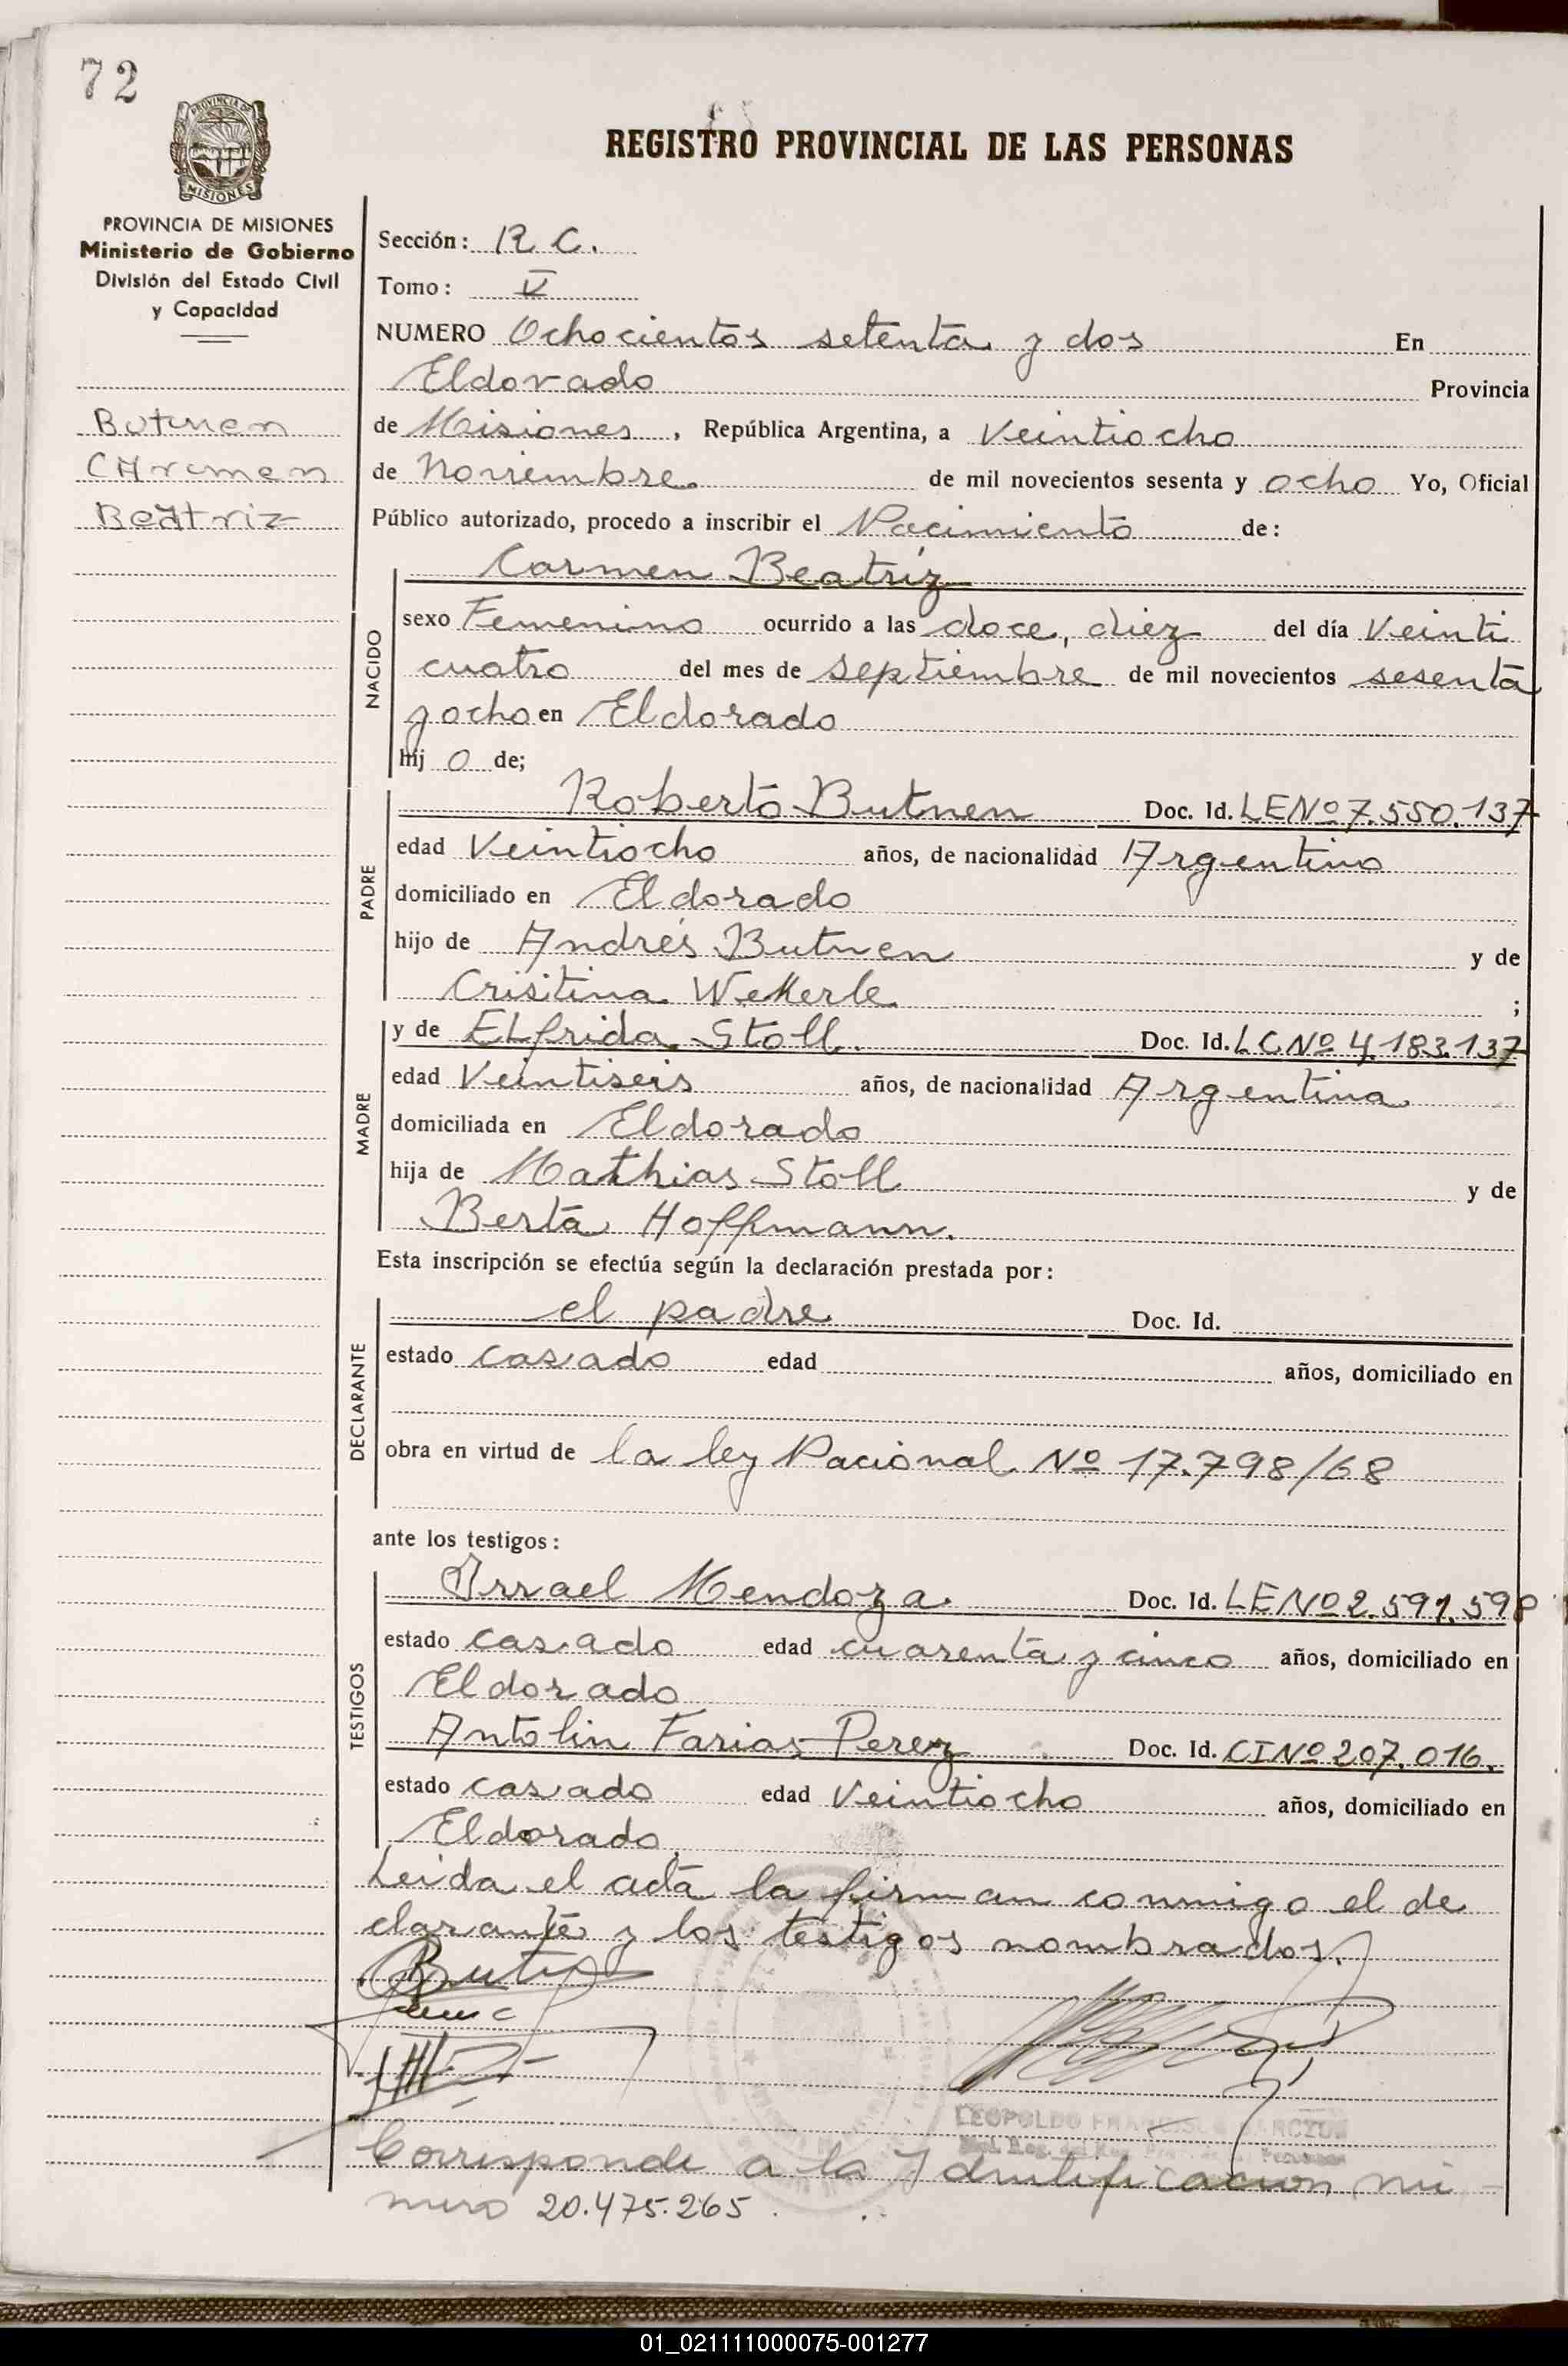 72
PROVINCIA DE
MISIONES
REGISTRO PROVINCIAL DE LAS PERSONAS
PROVINCIA DE MISIONES
Ministerio de Gobierno
División del Estado Civil
y Capacidad
Butnen
CArmen
Beatriz
Sección: R C.
Tomo: V
NUMERO Ochocientos setenta y dos En
Eldorado Provincia
de Misiones, República Argentina, a Veintiocho
de Noviembre de mil novecientos sesenta y ocho Yo, Oficial
Público autorizado, procedo a inscribir el Nacimiento de:
NACIDO
Carmen Beatriz
sexo Femenino ocurrido a las doce, diez del día Veinti
cuatro del mes de septiembre de mil novecientos sesenta
y ocho en Eldorado
hij o de;
PADRE
Roberto Butnen Doc. Id. LE Nº 7.550.137
edad Veintiocho años, de nacionalidad Argentino
domiciliado en Eldorado
hijo de Andrés Butnen y de
Crisitina Wekerle ;
MADRE
y de ELfrida Stoll. Doc. Id. LC Nº 4.183.137
edad Veintiseis años, de nacionalidad Argentina
domiciliada en Eldorado
hija de Mathias Stoll y de
Berta Hoffmann.
Esta inscripción se efectúa según la declaración prestada por:
DECLARANTE
el padre Doc. Id.
estado casado edad años, domiciliado en
obra en virtud de la ley Nacional Nº 17.798/68
ante los testigos:
TESTIGOS
Isrrael Mendoza Doc. Id. LE Nº 2.591.598
estado casado edad cuarenta y cinco años, domiciliado en
Eldorado
Antolin Farias Perez Doc. Id. CI Nº 207.016.
estado casado edad Veintiocho años, domiciliado en
Eldorado
Leida el acta la firman conmigo el de
clarante y los testigos nombrados.
LEOPOLDO
Corresponde a la Identificacion nu-
mero 20.475.265.
01_021111000075-001277